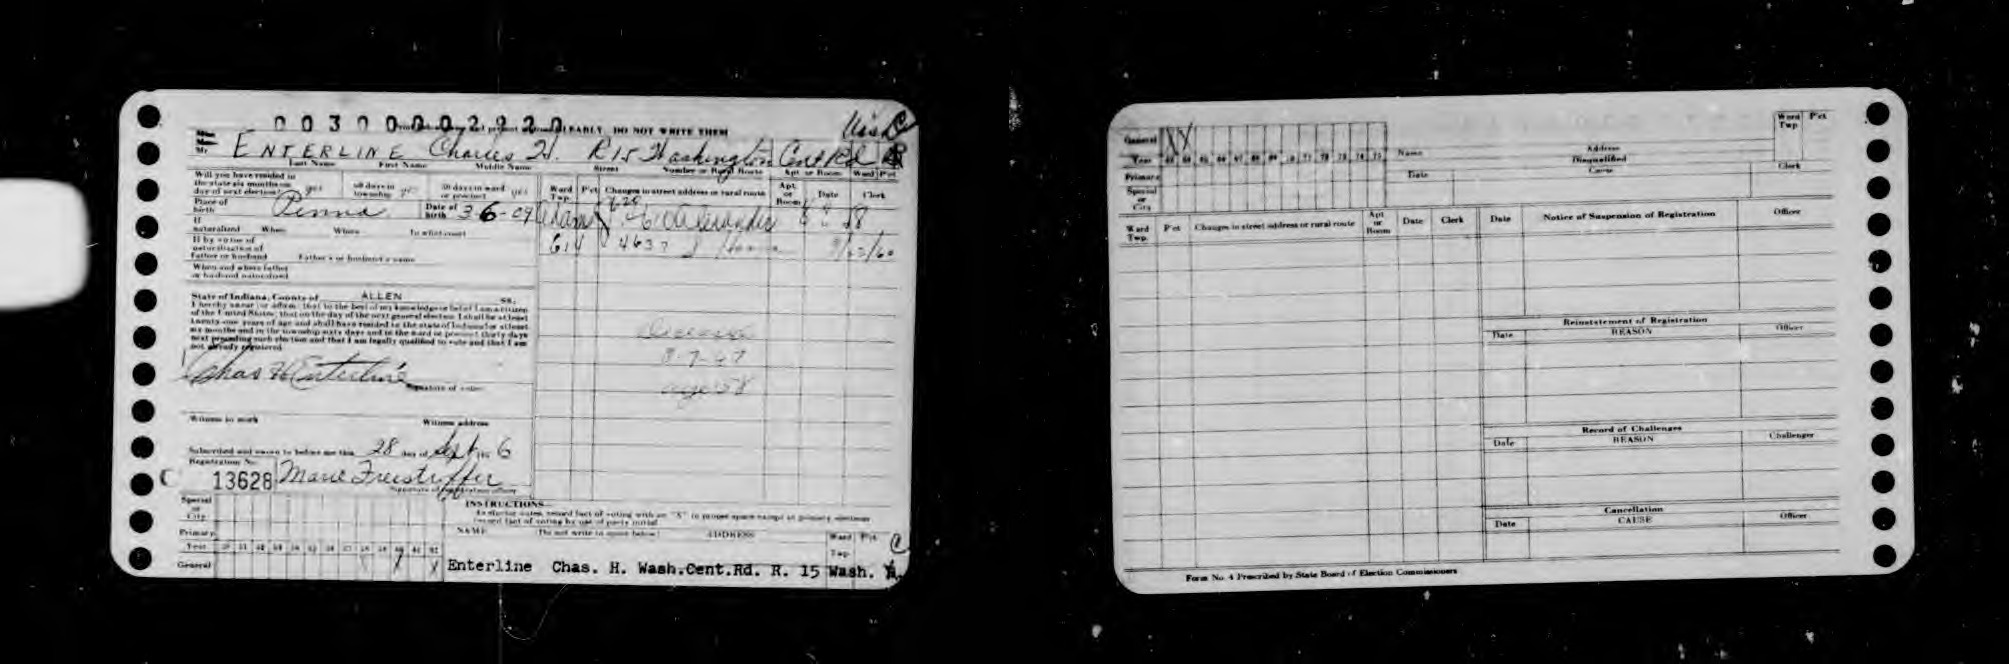 0030002920
CLEARLY. DO NOT WRITE THEM
Wash C
Mr. ENTERLINE Charles H. R 15 Washington Cent Rd
Last Name First Name Middle Name Street Number or Rural Route Apt or Room Ward Pct
Will you have resided in
the state six months on
day of next election? yes 60 days in township yes 30 days in ward or precinct yes
Ward Twp. P'ct Changes in street address or rural route Apt. or Room Date Clerk
Place of birth Penna Date of birth 3-6-09
Adams
If naturalized When Where In what court
614 4637 9/22/60
If by virtue of
naturalization of
Father or husband Father's or husband's name
When and where father
or husband naturalized
State of Indiana, County of ALLEN SS.
I hereby swear (or affirm) that to the best of my knowledge or belief I am a citizen
of the United States; that on the day of the next general election I shall be at least
twenty-one years of age and shall have resided in the state of Indiana for at least
six months and in the township sixty days and in the ward or precinct thirty days
next preceding such election and that I am legally qualified to vote and that I am
not already registered.
Deceased
8-7-67
age 58
Chas H Enterline
Signature of voter
Witness to mark Witness address
Subscribed and sworn to before me this 28 day of Sept 6
Registration No.
C 13628 Marie
Signature of registration officer
Special or City
INSTRUCTIONS
As elector votes, record fact of voting with an "X" in proper space except at primary elections
record fact of voting by use of party initial
Primary
NAME (Do not write in space below) ADDRESS Ward Twp. P'ct C
Year
General
Enterline Chas. H. Wash.Cent.Rd. R. 15 Wash.
General X Y
Year
Primary
Special or City
Name Address
Disqualified
Date Cause Clerk
Ward Twp P'ct
Ward Twp. P'ct Changes in street address or rural route Apt or Room Date Clerk
Date Notice of Suspension of Registration Officer
Reinstatement of Registration
Date REASON Officer
Record of Challenges
Date REASON Challenger
Cancellation
Date CAUSE Officer
Form No. 4 Prescribed by State Board of Election Commissioners